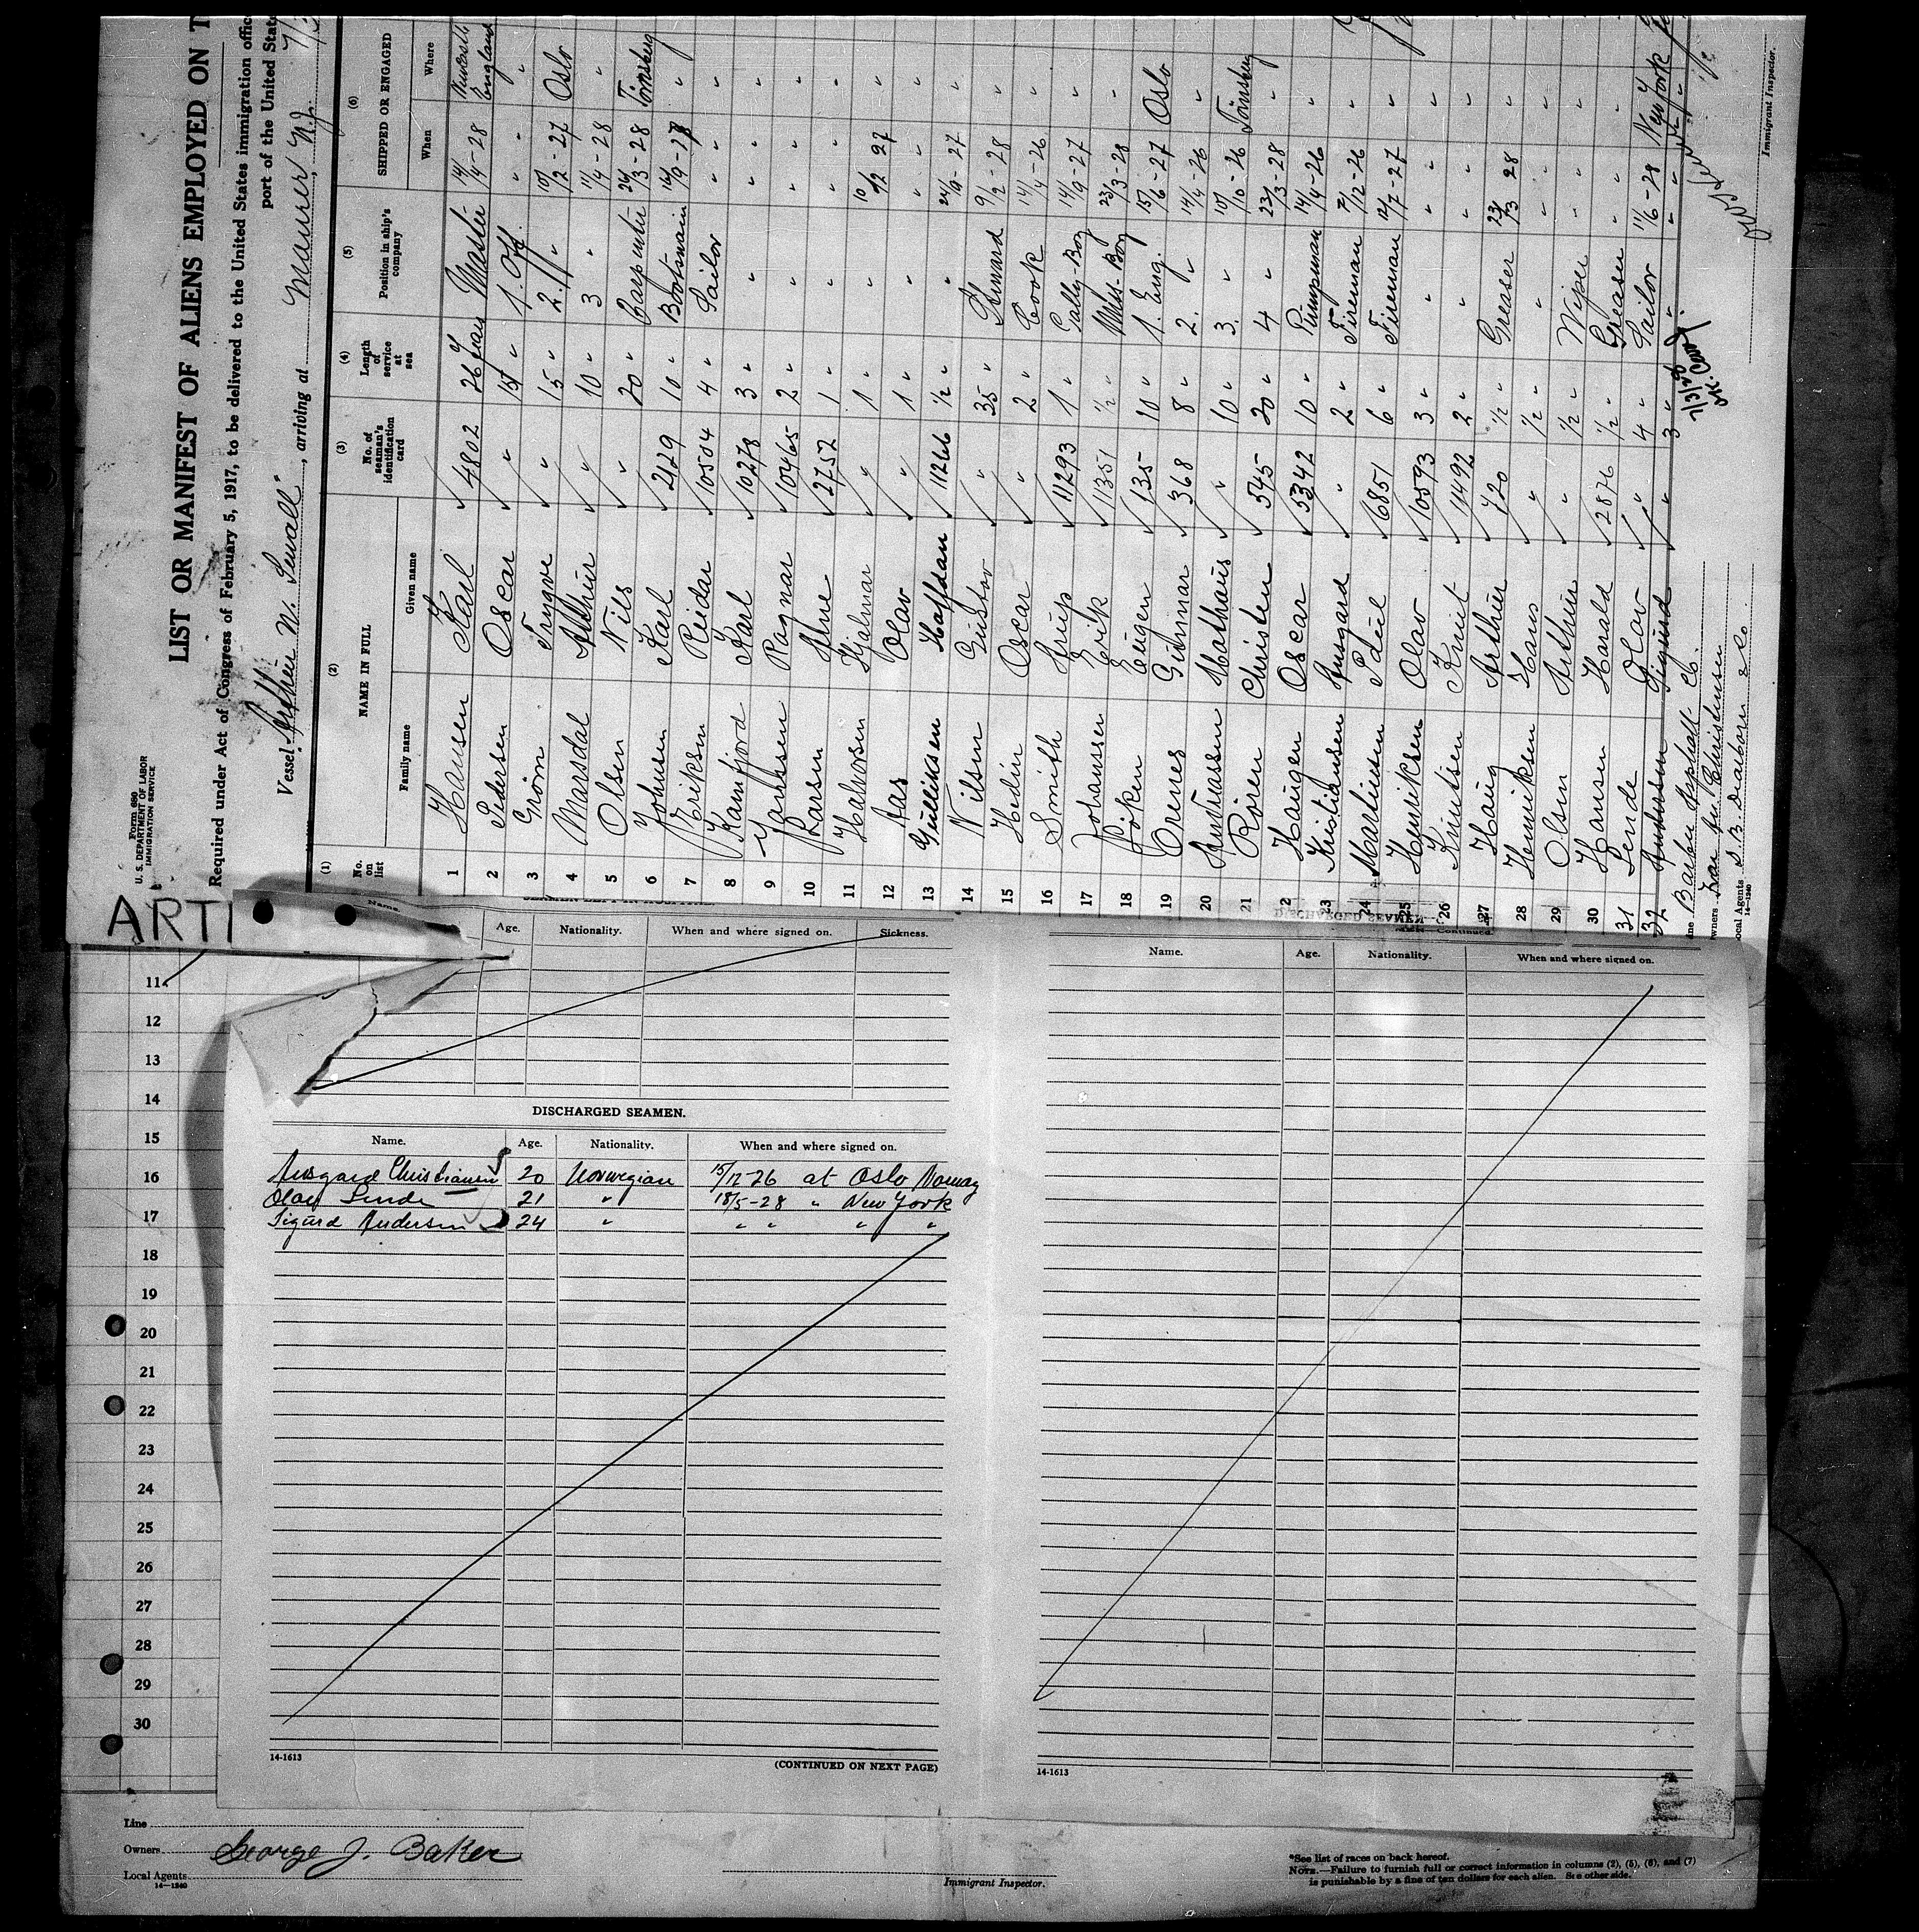 Form 680
U. S. DEPARTMENT OF LABOR
IMMIGRATION SERVICE
LIST OR MANIFEST OF ALIENS EMPLOYED ON T
Required under Act of Congress of February 5, 1917, to be delivered to the United States immigration offic
port of the United Stat
Vessel Arthur W. Sewall, arriving at Maurer, N.J.
(1) (2) (3) (4) (5) (6)
No. on list NAME IN FULL No. of seaman's identification card Length of service at sea Position in ship's company SHIPPED OR ENGAGED
Family name Given name When Where
1 Hansen Karl 4802 26 years Master 14/4-28 England
2 Pedersen Oscar " 15 " 1. Off. " "
3 Grøm Trygve " 15 " 2. " 10/2-27 Oslo
4 Marsdal Arthur " 10 " 3 " 11/4-28 "
5 Olsen Nils " 20 " Carpenter 24/3-28 Tønsberg
6 Johnsen Karl 2129 10 " Bootsmain 14/9-27 "
7 Eriksen Reidar 10504 4 " Sailor " "
8 Kamfjord Karl 10278 3 " " " "
9 Ragnar 10465 2 " " " "
10 Larsen Arne 2752 1 " " " "
11 Halvorsen Hjalmar " 1 " " 10/12 27 "
12 Aas Olav " 1 " " " "
13 Gulliksen Halfdan 11266 1/2 " " 24/9-27 "
14 Nilsen Gustav " 35 " Steward 9/2-28 "
15 Hedin Oscar " 2 " Cook 14/4-26 "
16 Smith 11293 1 " Gally-Boy 14/9-27 "
17 Johanssen Erik 11351 1/2 " Mess-Boy 23/3-28 "
18 Eugen 135 10 " 1. Eng. 15/6-27 Oslo
19 Orenes Gunnar 368 8 " 2. " 14/4-26 "
20 Mathæus " 10 " 3. " 10/10-26 Tønsberg
21 Røren Christen 545 20 " 4 " 23/3-28 "
22 Haugen Oscar 5342 10 " Pumpman 14/4-26 "
23 Kristiansen Ausgard " 2 " Fireman "
24 Martinsen 6851 6 " Fireman 12/7-27 "
25 Henriksen Olav 10593 3 " " " "
26 Knutsen Knut 1492 2 " " " "
27 Haug Arthur 720 1/2 " Greaser 23/3 28 "
28 Henriksen Hans " 1/2 " " " "
29 Olsen Arthur " 1/2 " Wiper " "
30 Hansen Harald 2876 1/2 " Greaser " "
31 Sende Olav " 4 " Sailor 11/6-28 New York
32 Andersen Sigurd " 3 " " " "
Line Barber Asphalt Co.
Owners
Local Agents S. B. Dearborn & Co.
14-1240
Immigrant Inspector.
ARTI
Name. Age. Nationality. When and where signed on. Sickness.
11
12
13
14
15
16
17
18
19
20
21
22
23
24
25
26
27
28
29
30
DISCHARGED SEAMEN.
Name. Age. Nationality. When and where signed on.
Ausgard Christiansen 20 Norwegian 15/12-26 at Oslo Norway
Olav Sende 21 " 18/5-28 " New York
Sigurd Andersen 24 " " " " "
14-1613
(CONTINUED ON NEXT PAGE)
DISCHARGED SEAMEN—Continued.
Name. Age. Nationality. When and where signed on.
14-1613
Line
Owners George J. Baker
Local Agents
14-1240
Immigrant Inspector.
*See list of races on back hereof.
NOTE.—Failure to furnish full or correct information in columns (2), (5), (6), and (7)
is punishable by a fine of ten dollars for each alien. See other side.